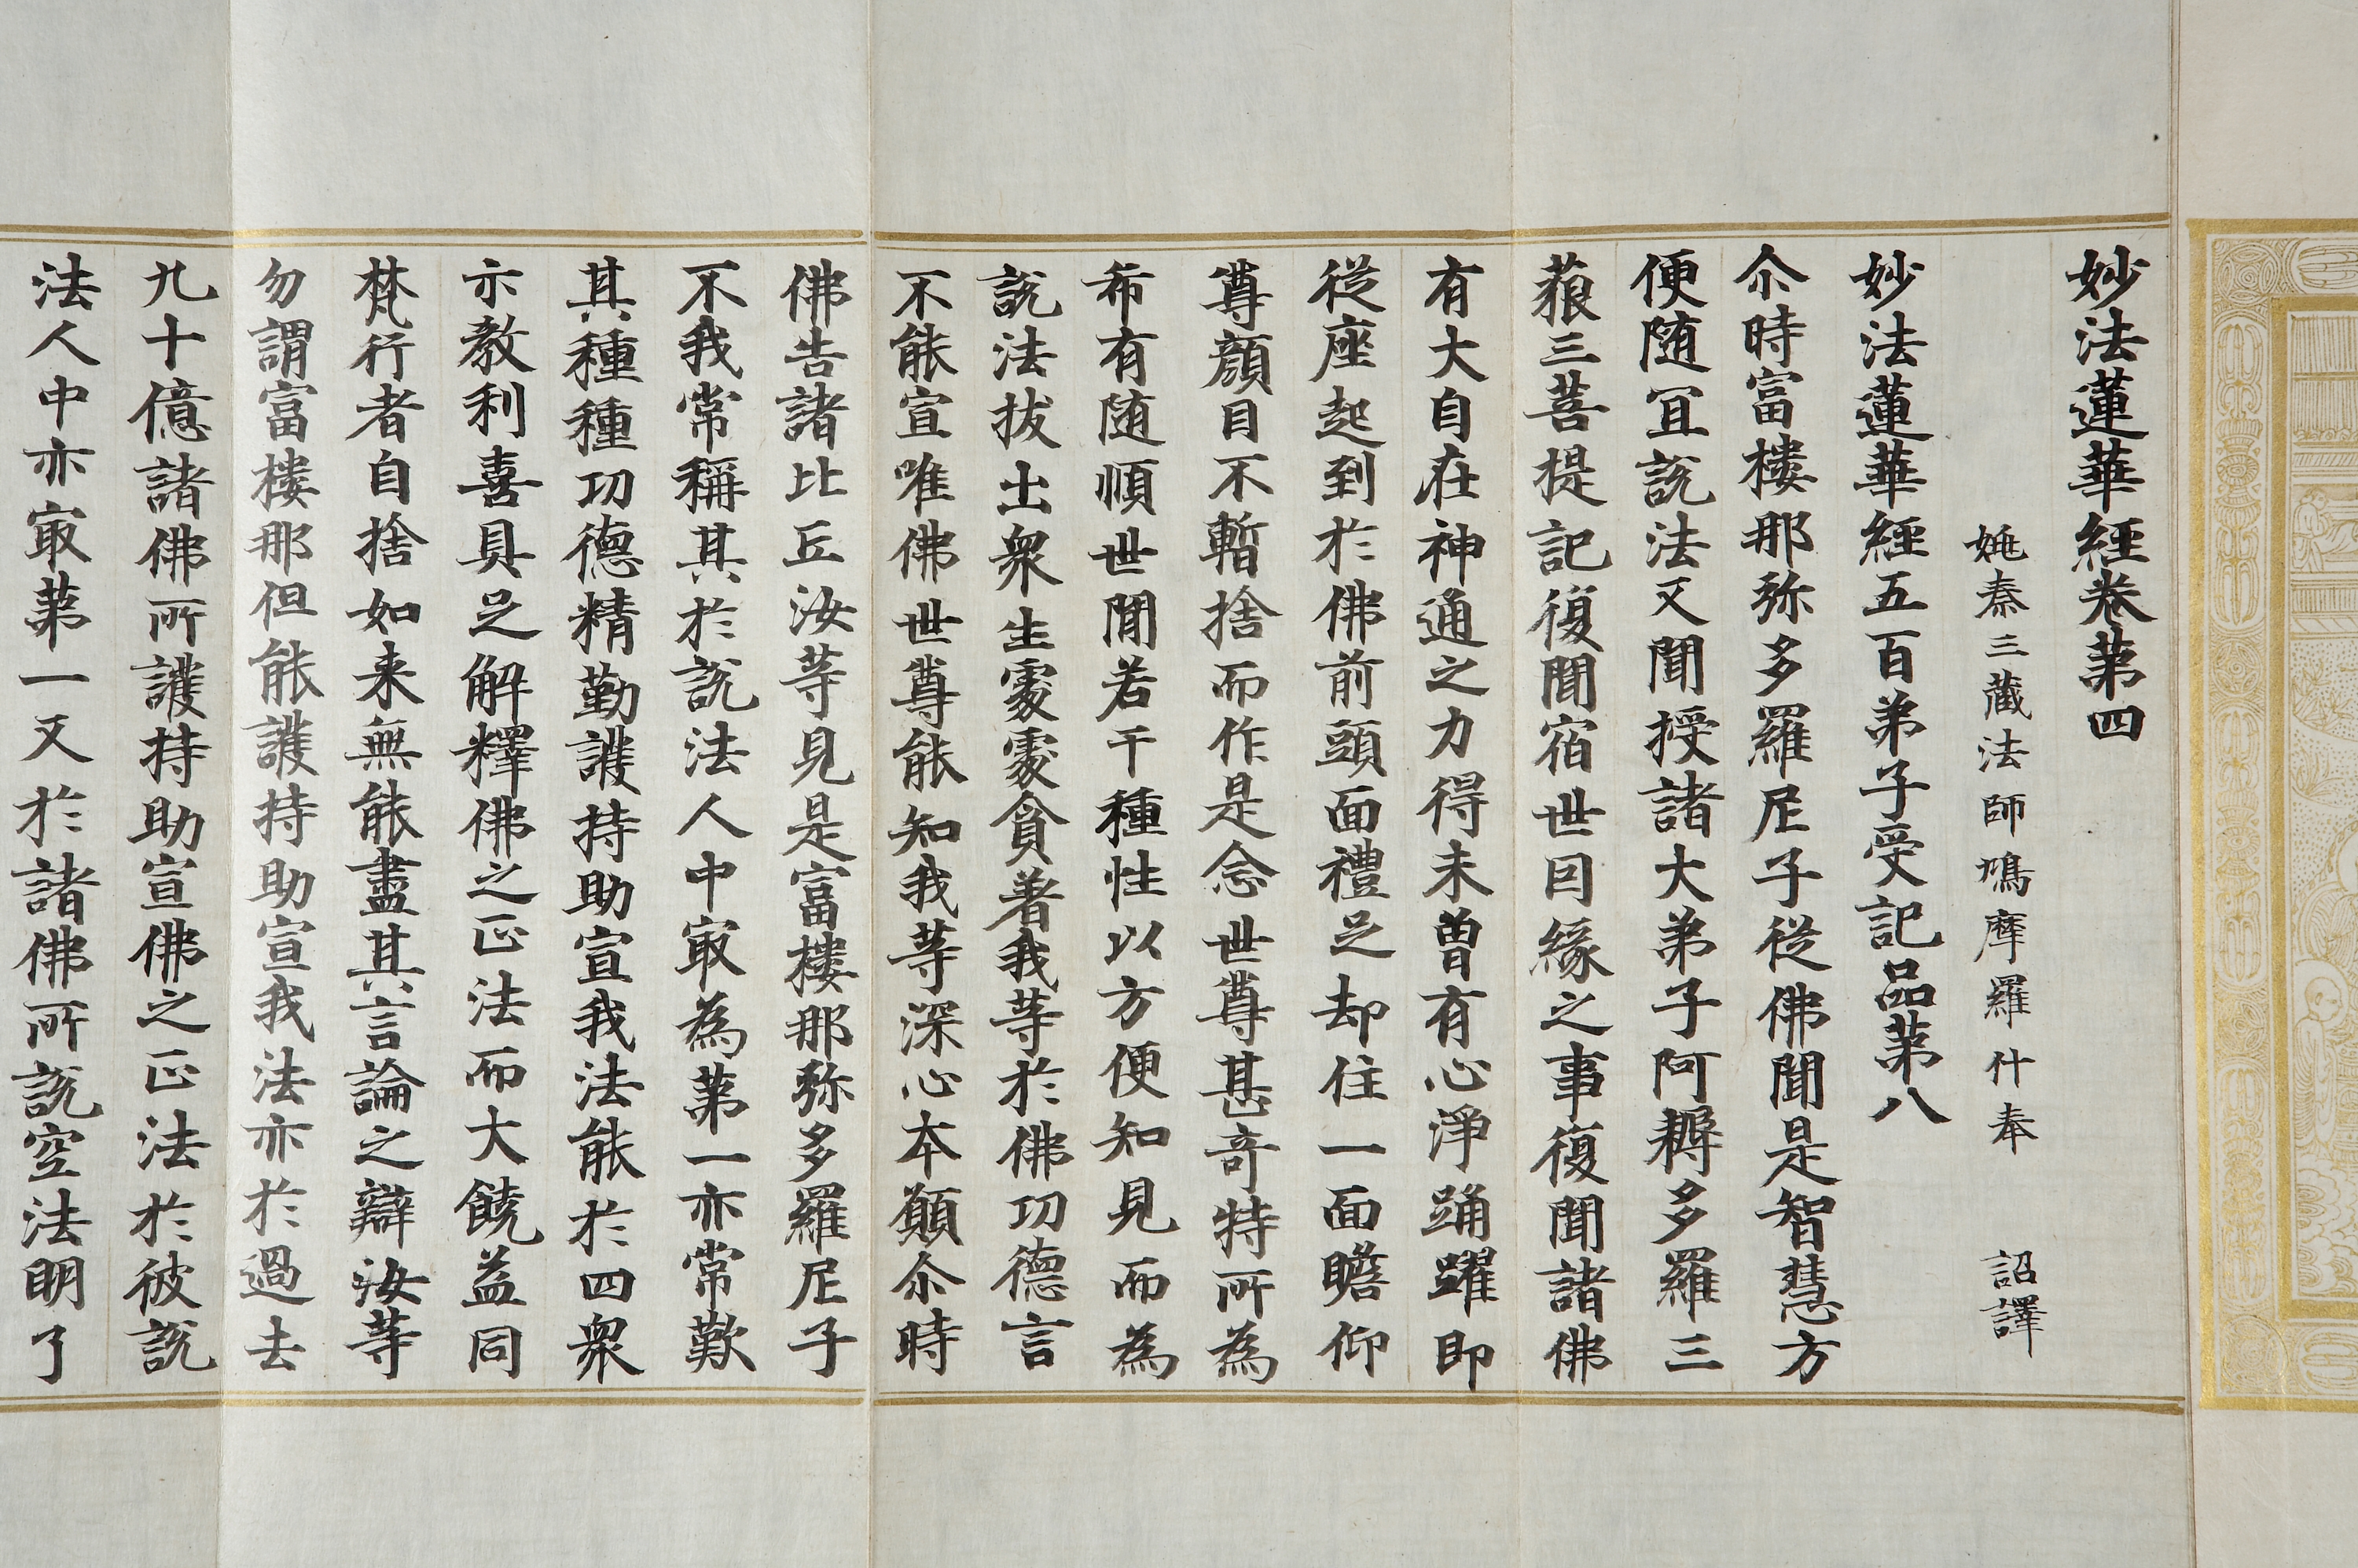 妙法蓮華経卷苐四
姚秦三藏法師鳩摩羅什奉 詔譯
妙法蓮華經五百弟子受記品苐八
尒時富樓那弥多羅尼子從佛聞是智慧方
便随冝說法又聞授諸大弟子阿耨多羅三
藐三菩提記復聞宿世囙緣之事復聞諸佛
有大自在神通之力得未曾有心淨踊躍即
從座起到於佛前頭面禮足却住一面瞻仰
尊顔目不暫捨而作是念世尊甚竒特所為
希有随順世間若干種性以方便知見而為
說法拔出衆生䖏䖏貪著我等於佛功德言
不能宣唯佛世尊能知我等深心本願尒時
佛告諸比丘汝等見是富樓那弥多羅尼子
不我常稱其於說法人中㝡為苐一亦常歎
其種種功德精勤護持助宣我法能於四衆
示教利喜具足解釋佛之正法而大饒益同
梵行者自捨如来無能盡其言論之辯汝等
勿謂富樓那但能護持助宣我法亦於過去
九十億諸佛所護持助宣佛之正法於彼說
法人中亦㝡苐一又於諸佛所說空法明了